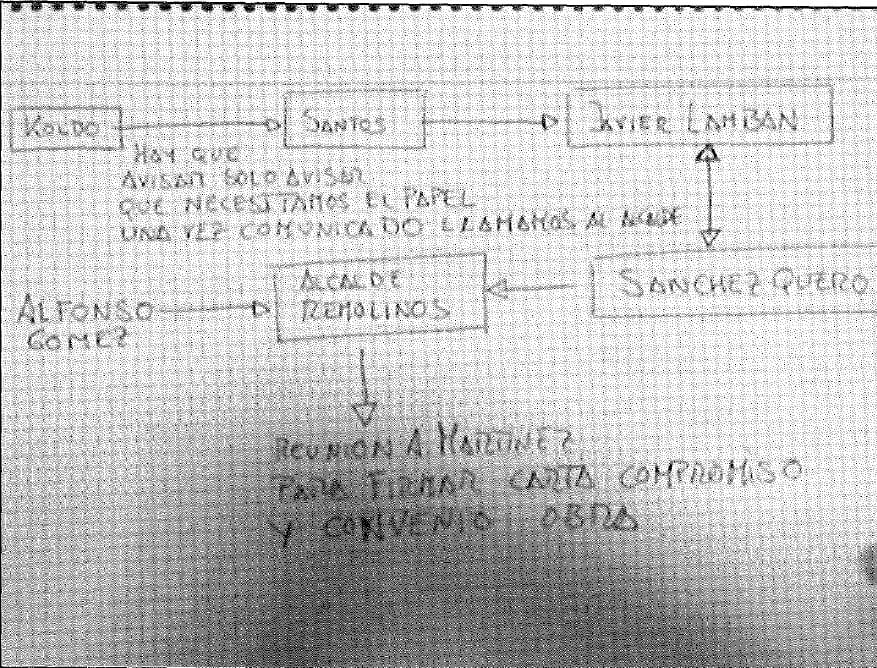 KOLDO
SANTOS
JAVIER LAMBAN
HAY QUE
AVISAR SOLO AVISAR
QUE NECESITAMOS EL PAPEL
UNA VEZ COMUNICADO LLAMAMOS AL
ALCALDE
REMOLINOS
SANCHEZ QUERO
ALFONSO
GOMEZ
REUNION A. MARTINEZ
PARA FIRMAR CARTA COMPROMISO
Y CONVENIO OBRA